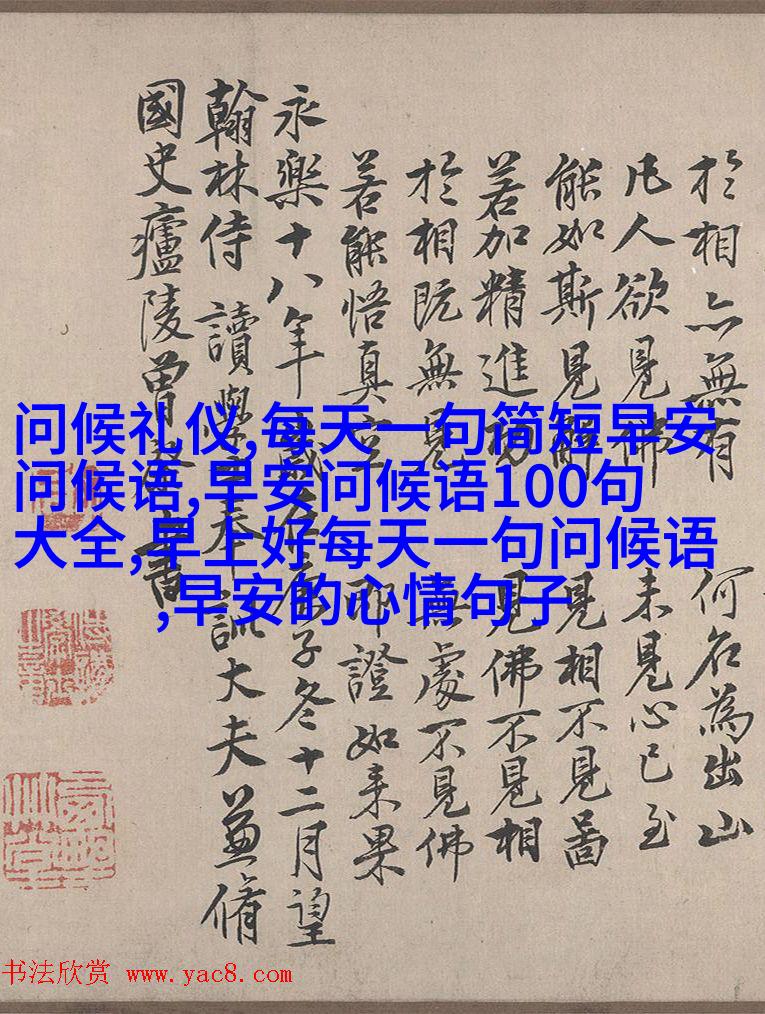 於相亦無有 何名為出山
凡人欲見佛 未見心已至
能如斯見解 見相不見啚
若加精進功 見佛不見相
於相既無見 無處不見佛
若能悟真空 即證如来果
永樂十八年歲在庚子冬十二月望
翰林侍讀學士奉訓大夫兼脩
國史廬陵曾棨書
问候礼仪,每天一句简短早安
问候语,早安问候语100句
大全,早上好每天一句问候语
,早安的心情句子
书法欣赏 www.yac8.com